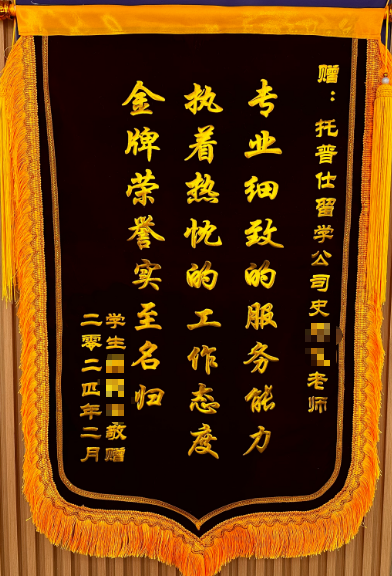 赠：托普仕留学公司史老师
专业细致的服务能力
执着热忱的工作态度
金牌荣誉实至名归
学生敬赠
二零二四年二月